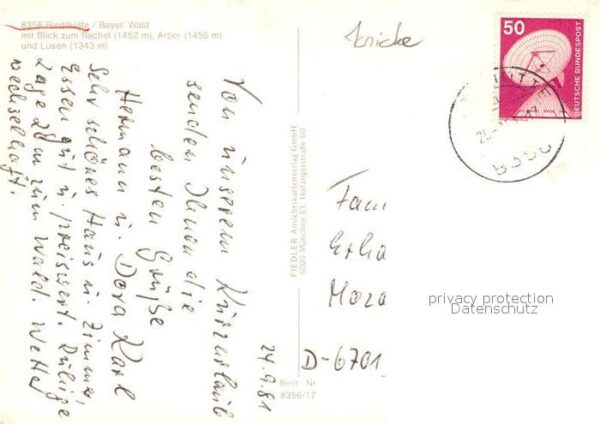 8356 Riedlhütte / Bayer. Wald
mit Blick zum Rachel (1452 m), Arber (1456 m)
und Lusen (1343 m)
Von unserem Kurzurlaub
senden Ihnen die
besten Grüße
Hermann u. Dora Karl
Sehr schönes Haus u. Zimmer,
Essen gut u. preiswert. Ruhige
Lage 20 m zum Wald. Wetter
wechselhaft.
24.9.81
FIEDLER Ansichtskartenverlag GmbH
8000 München 83, Hofangerstraße 60
Best Nr
8356/17
knicke
50
DEUTSCHE BUNDESPOST
Fam
Erha
Mora
D-6701
privacy protection
Datenschutz